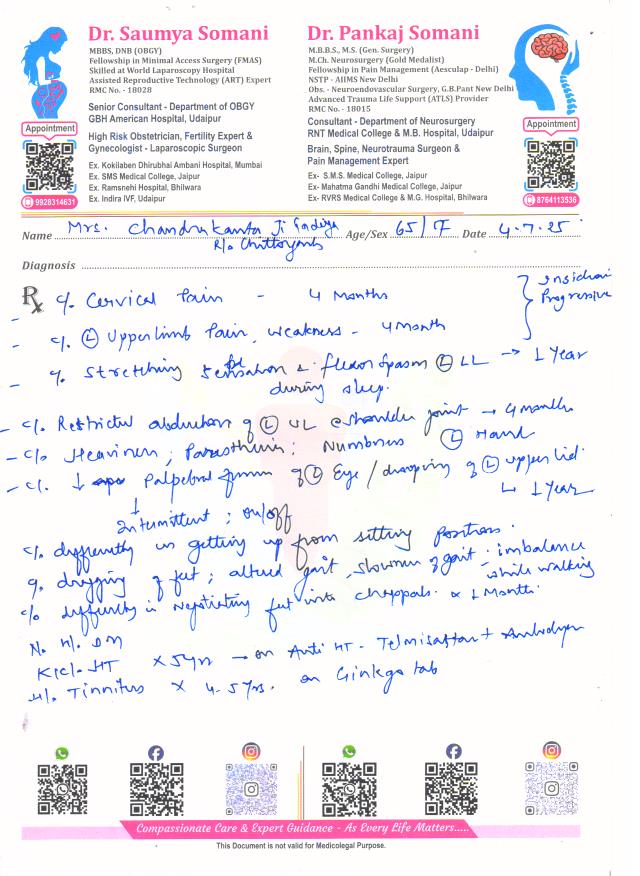 Dr. Saumya Somani
MBBS, DNB (OBGY)
Fellowship in Minimal Access Surgery (FMAS)
Skilled at World Laparoscopy Hospital
Assisted Reproductive Technology (ART) Expert
RMC No. - 18028
Senior Consultant - Department of OBGY
GBH American Hospital, Udaipur
High Risk Obstetrician, Fertility Expert &
Gynecologist - Laparoscopic Surgeon
Ex. Kokilaben Dhirubhai Ambani Hospital, Mumbai
Ex. SMS Medical College, Jaipur
Ex. Ramsnehi Hospital, Bhilwara
Ex. Indira IVF, Udaipur
Appointment
9928314631
Dr. Pankaj Somani
M.B.B.S., M.S. (Gen. Surgery)
M.Ch. Neurosurgery (Gold Medalist)
Fellowship in Pain Management (Aesculap - Delhi)
NSTP - AIIMS New Delhi
Obs. - Neuroendovascular Surgery, G.B.Pant New Delhi
Advanced Trauma Life Support (ATLS) Provider
RMC No. - 18015
Consultant - Department of Neurosurgery
RNT Medical College & M.B. Hospital, Udaipur
Brain, Spine, Neurotrauma Surgeon &
Pain Management Expert
Ex- S.M.S. Medical College, Jaipur
Ex- Mahatma Gandhi Medical College, Jaipur
Ex- RVRS Medical College & M.G. Hospital, Bhilwara
Appointment
8764113536
Name Mrs. Chandrakanta Ji Age/Sex 65/F Date 4.7.25
R/o
Diagnosis
Rx c/o Cervical Pain - 4 Months
Progressive
- c/o (L) Upperlimb Pain, weakness - 4 month
- c/o Stretching sensation & flexor spasm (L) LL → 1 year
during sleep.
- c/o Restricted abduction of (L) UL @ shoulder joint → 4 months
- c/o Heaviness; Paresthesia; Numbness (L) Hand
- c/o ↓ Palpebral of (L) Eye / drooping of (L) upper lid
↳ 1 Year
Intermittent; on/off
c/o difficulty in getting up from sitting position.
c/o dragging of feet; altered gait, slowness of gait, imbalance
while walking
c/o difficulty in negotiating feet into chappals x 1 Month.
N. H/o DM
K/c/o HT x 5 yrs → on Anti HT - Telmisartan +
H/o Tinnitus x 4-5 yrs. on Ginkgo tab
Compassionate Care & Expert Guidance - As Every Life Matters.....
This Document is not valid for Medicolegal Purpose.